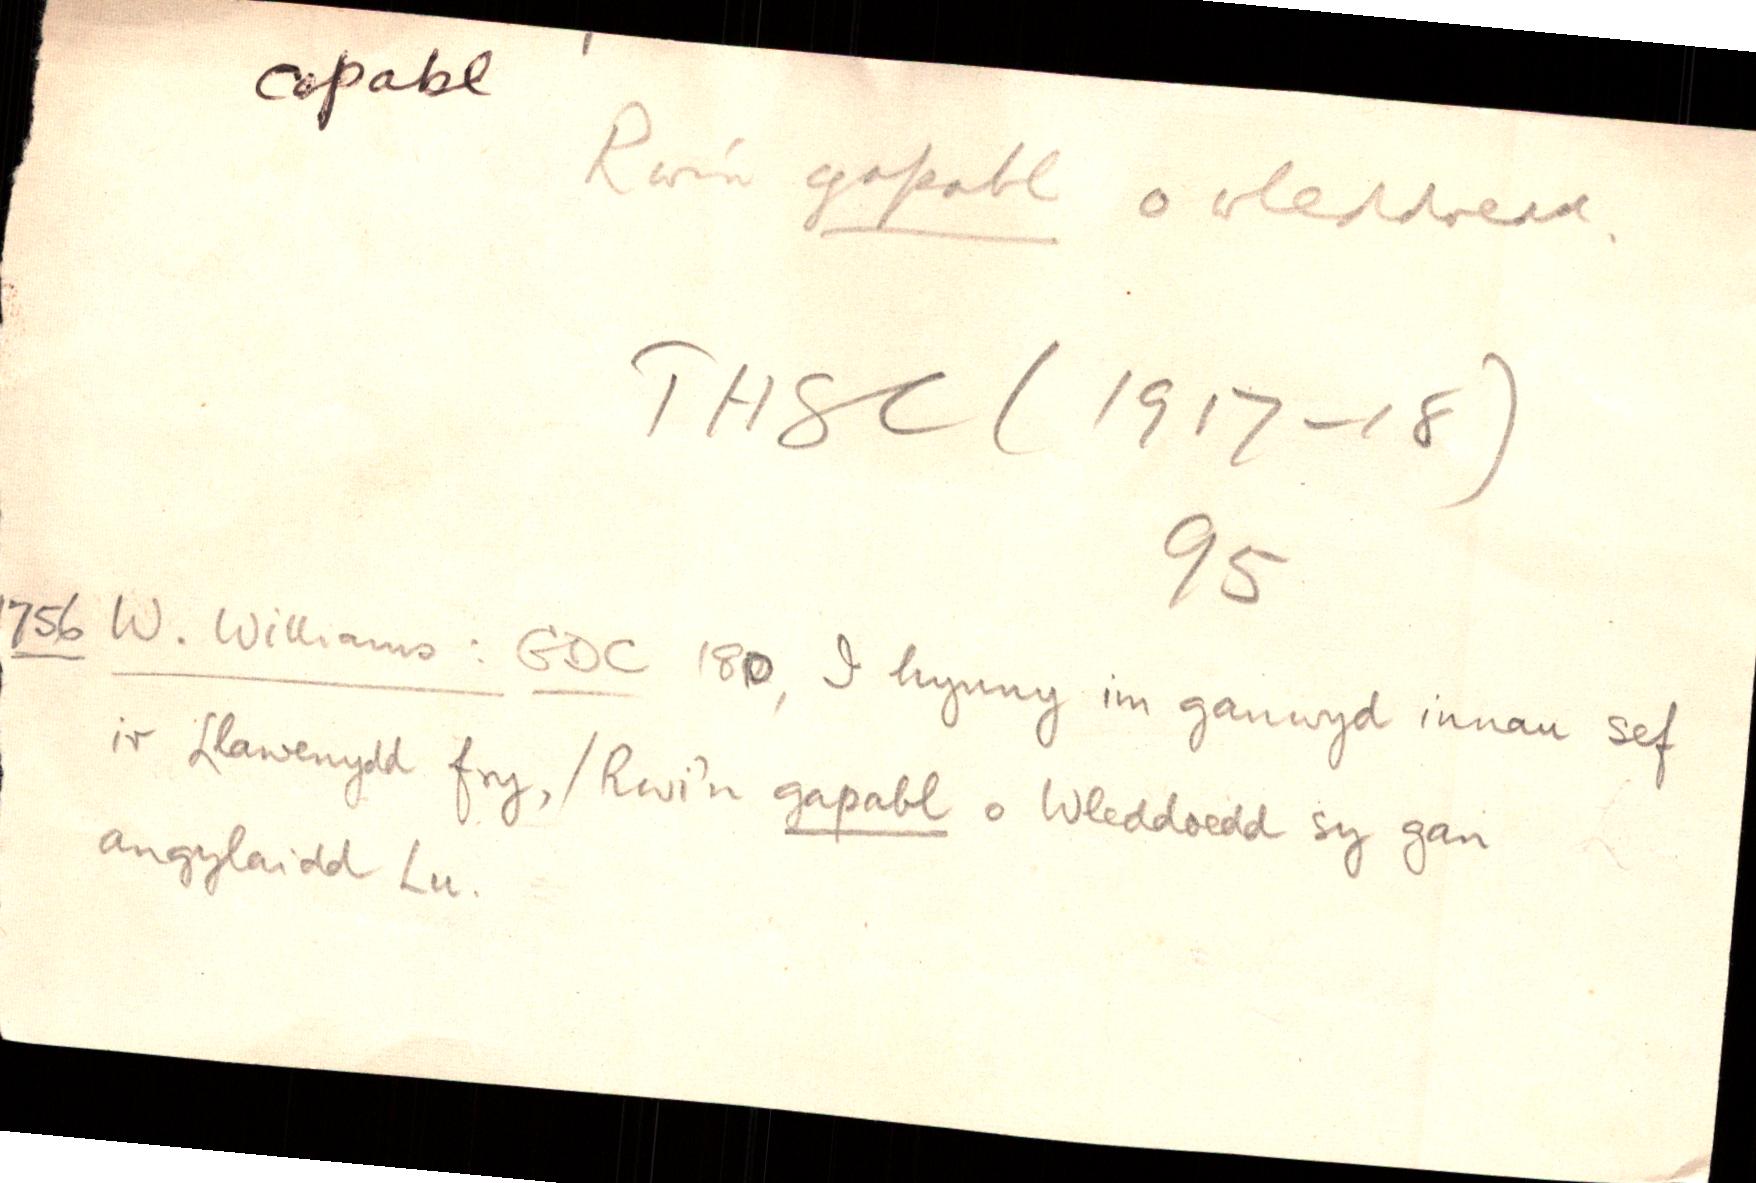 capabl
Rwi'n gapabl o wleddoedd.
THSC (1917-18)
95
1756 W. Williams: GDC 180, I hynny im ganwyd innau sef
ir Llawenydd fry, / Rwi'n gapabl o Wleddoedd sy gan
angylaidd Lu.